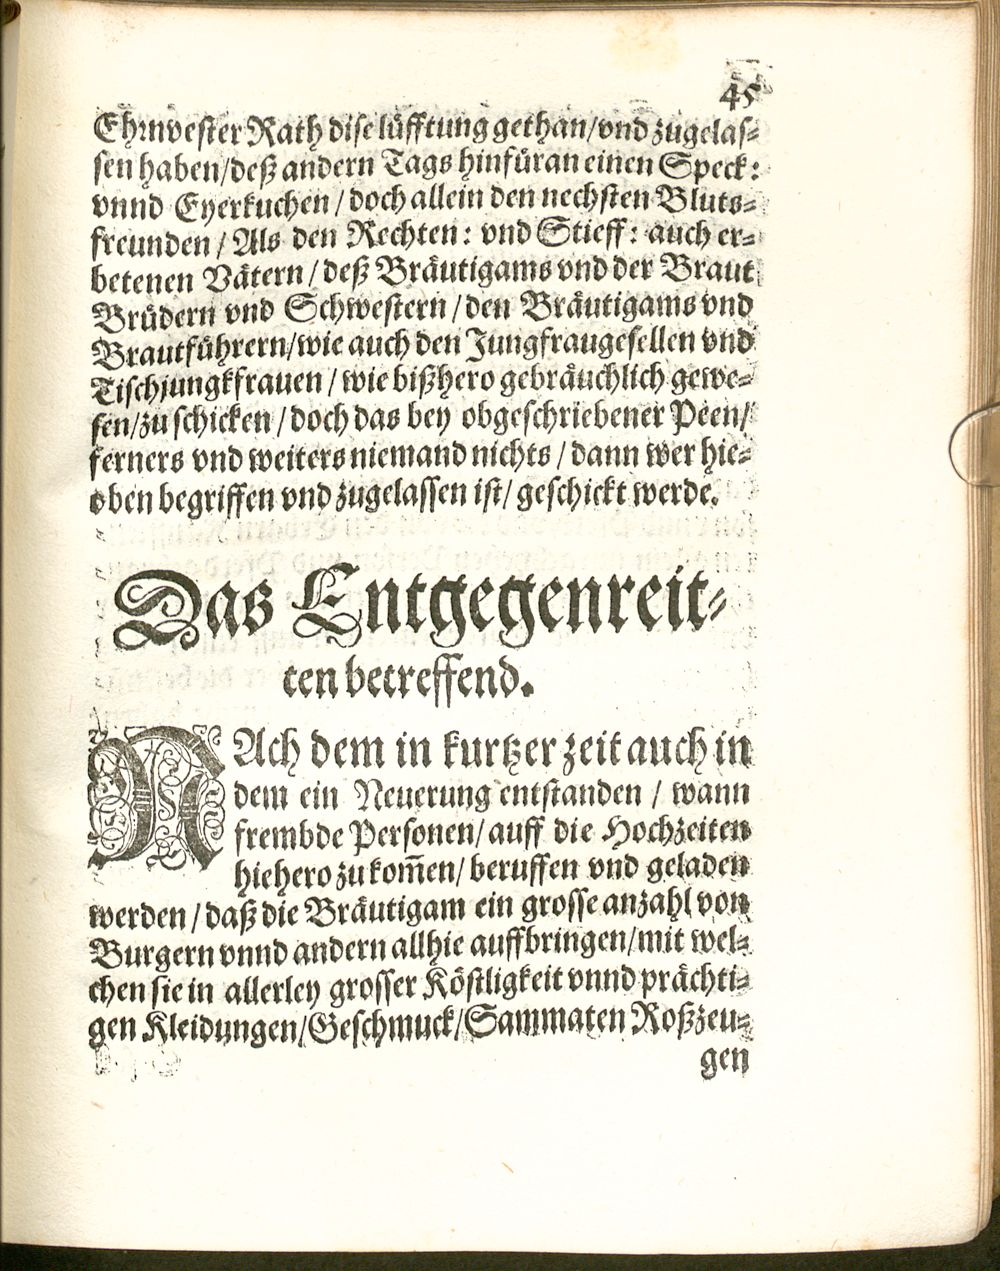 45
Ehrnvester Rath dise lüfftung gethan/vnd zugelas-
sen haben/deß andern Tags hinfüran einen Speck:
vnnd Eyerkuchen/doch allein den nechsten Bluts-
freunden/Als den Rechten: vnd Stieff: auch er-
betenen Vätern/deß Bräutigams vnd der Braut
Brüdern vnd Schwestern/den Bräutigams vnd
Brautführern/wie auch den Jungfraugesellen vnd
Tischjungkfrauen/wie bißhero gebräuchlich gewe-
sen/zu schicken/doch das bey obgeschriebener Peen/
ferners vnd weiters niemand nichts/dann wer hie-
oben begriffen vnd zugelassen ist/geschickt werde.
Das Entgegenreit-
ten betreffend.
NAch dem in kurtzer zeit auch in
dem ein Neuerung entstanden/wann
frembde Personen/auff die Hochzeiten
hiehero zu kom̃en/beruffen vnd geladen
werden/daß die Bräutigam ein grosse anzahl von
Burgern vnnd andern allhie auffbringen/mit wel-
chen sie in allerley grosser Köstligkeit vnnd prächti-
gen Kleidungen/Geschmuck/Sammaten Roßzeu-
gen